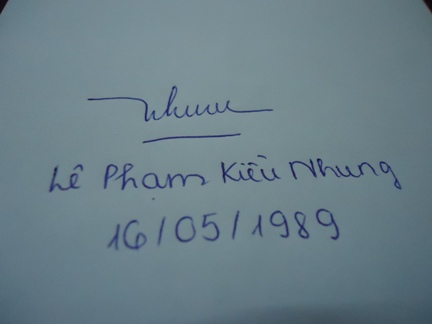 Nhung
Lê Phạm Kiều Nhung
16/05/1989